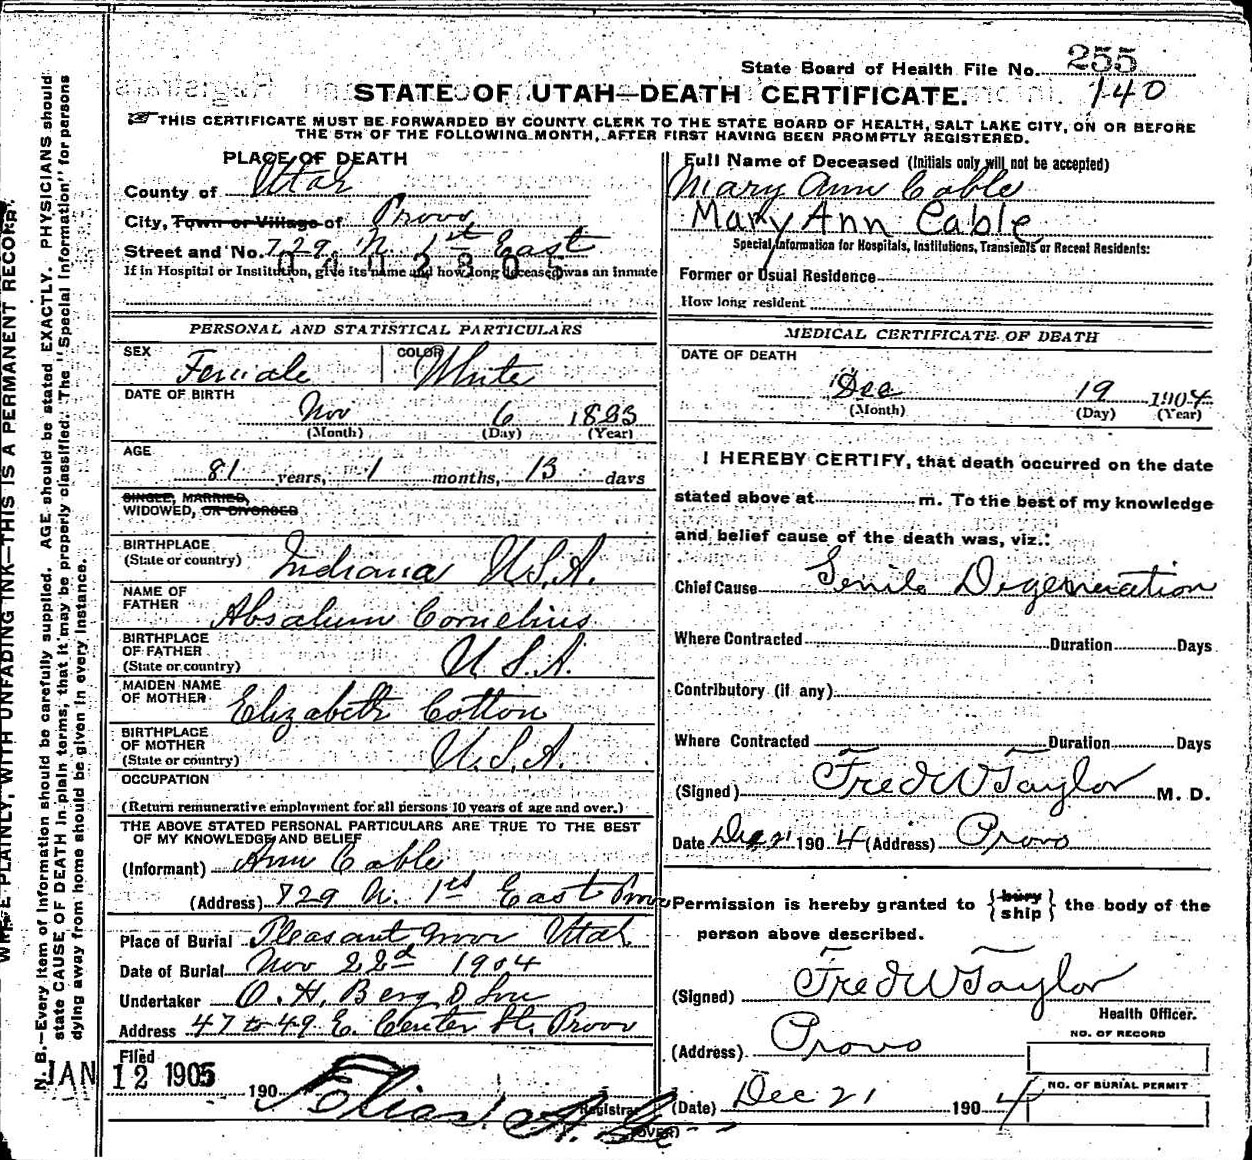 State Board of Health File No. 255
140
STATE OF UTAH—DEATH CERTIFICATE.
THIS CERTIFICATE MUST BE FORWARDED BY COUNTY CLERK TO THE STATE BOARD OF HEALTH, SALT LAKE CITY, ON OR BEFORE
THE 5TH OF THE FOLLOWING MONTH, AFTER FIRST HAVING BEEN PROMPTLY REGISTERED.
PLACE OF DEATH
County of Utah
City, Town or Village of Provo
Street and No. 729 N. 1st East
0402805
If in Hospital or Institution, give its name and how long deceased was an inmate
PERSONAL AND STATISTICAL PARTICULARS
SEX Female COLOR White
DATE OF BIRTH
Nov 6 1823
(Month) (Day) (Year)
AGE
81 years, 1 months, 13 days
SINGLE, MARRIED,
WIDOWED, OR DIVORCED
BIRTHPLACE
(State or country) Indiana U.S.A.
NAME OF
FATHER Absalum Cornelius
BIRTHPLACE
OF FATHER
(State or country) U.S.A.
MAIDEN NAME
OF MOTHER Elizabeth Cotton
BIRTHPLACE
OF MOTHER
(State or country) U.S.A.
OCCUPATION
(Return remunerative employment for all persons 10 years of age and over.)
THE ABOVE STATED PERSONAL PARTICULARS ARE TRUE TO THE BEST
OF MY KNOWLEDGE AND BELIEF
(Informant) Ann Cable
(Address) 729 N. 1st East Provo
Place of Burial Pleasant Grove Utah
Date of Burial Nov 22d 1904
Undertaker O. H. Berg & Son
Address 47 to 49 E. Center St. Provo
Filed
JAN 12 1905 190
Elias A.
Registrar
(OVER)
Full Name of Deceased (Initials only will not be accepted)
Mary Ann Cable
Mary Ann Cable
Special Information for Hospitals, Institutions, Transients or Recent Residents:
Former or Usual Residence
How long resident
MEDICAL CERTIFICATE OF DEATH
DATE OF DEATH
Dec 19 1904
(Month) (Day) (Year)
I HEREBY CERTIFY, that death occurred on the date
stated above at m. To the best of my knowledge
and belief cause of the death was, viz.:
Chief Cause Senile Degeneration
Where Contracted Duration Days
Contributory (if any)
Where Contracted Duration Days
(Signed) Fred W Taylor M. D.
Date Dec 21 1904 (Address) Provo
Permission is hereby granted to {bury ship} the body of the
person above described.
(Signed) Fred W Taylor
Health Officer.
(Address) Provo
NO. OF RECORD
NO. OF BURIAL PERMIT
(Date) Dec 21 1904
WRITE PLAINLY, WITH UNFADING INK—THIS IS A PERMANENT RECORD.
N. B.—Every item of information should be carefully supplied. AGE should be stated EXACTLY. PHYSICIANS should
state CAUSE OF DEATH in plain terms, that it may be properly classified. The "Special Information" for persons
dying away from home should be given in every instance.